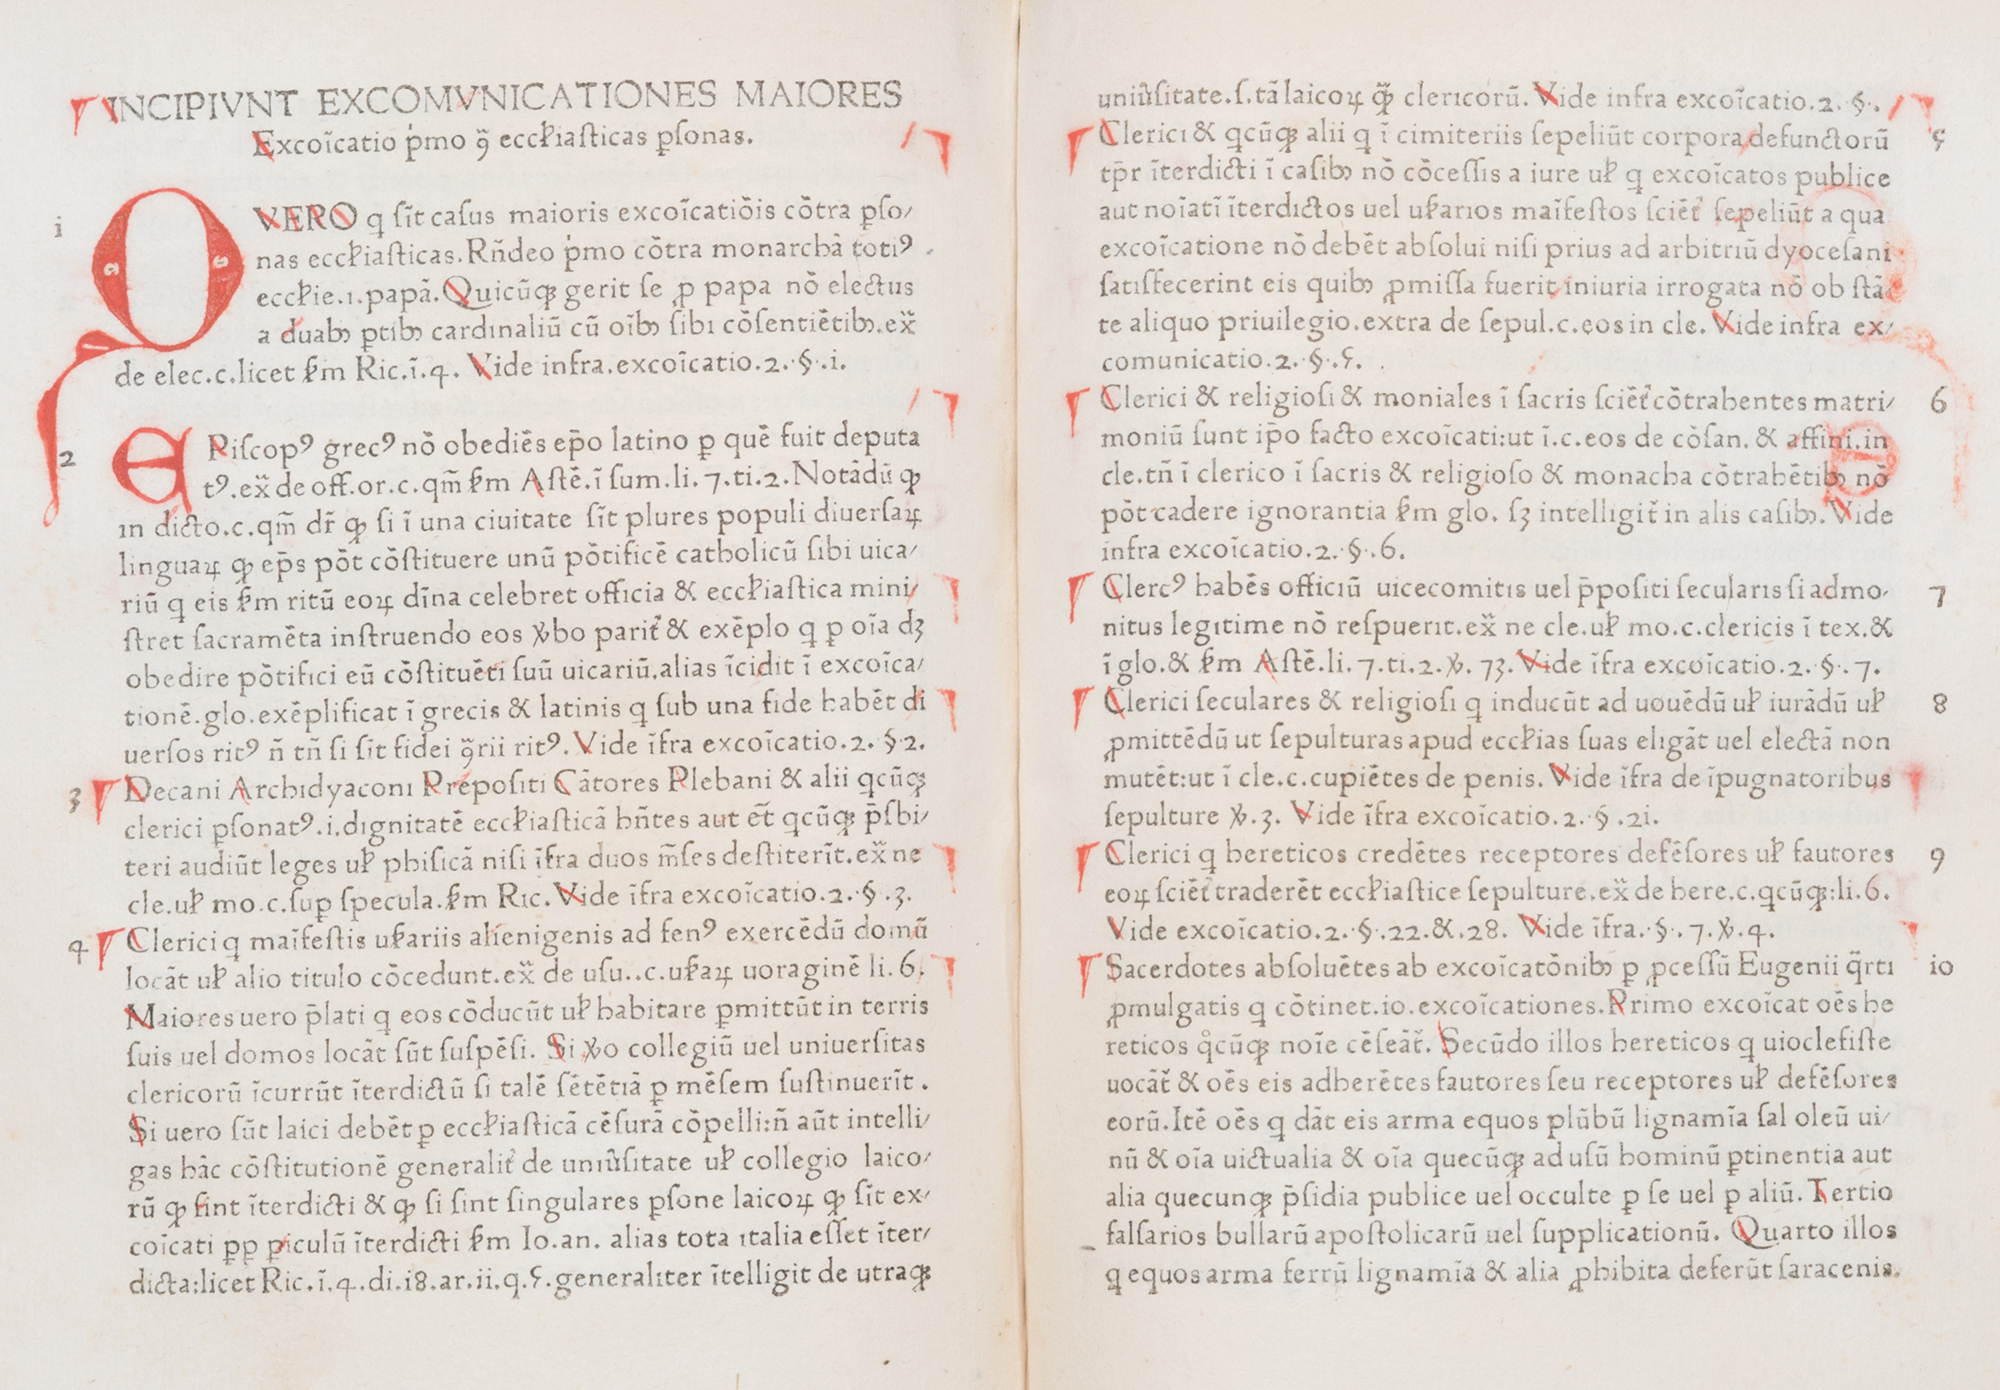 INCIPIVNT EXCOMVNICATIONES MAIORES
Excoīcatio p̍mo ꝯ̃ eccłiaſticas ꝑſonas.
i
QVERO q ſīt caſus maioris excoīcatiōis cōtra ꝑſo/
nas eccłiaſticas. Rñdeo p̍mo cōtra monarchā totiꝰ
eccłie.ı.papā. Quicūqꝫ gerit ſe ꝓ papa nō electus
a duabꝫ ꝑtibꝫ cardinaliū cū oībꝫ ſibi cōſentiētibꝫ.ex̃
de elec.c.licet ẜm Ric.ī.4. Vide infra.excoīcatio.2.·§·.i.
2
EPiſcopꝰ grecꝰ nō obediēs ep̄o latino ꝑ quē fuit deputa
tꝰ.ex̃ de off.or.c.qm̄ ẜm Aſtē.ī ſum.li.7.ti.2.Notādū ꝙ
in dicto.c.qm̄ dr̄ ꝙ ſi ī una ciuitate ſīt plures populi diuerſaꝝ
linguaꝝ ꝙ ep̄s pōt cōſtituere unū pōtificē catholicū ſibi uica/
riū q eis ẜm ritū eoꝝ dīna celebret officia & eccłiaſtica mini/
ſtret ſacramēta inſtruendo eos ꝟbo parit̃ & exēplo q ꝑ oīa dꝫ
obedire pōtifici eū cōſtituēti ſuū uicariū,alias īcidit ī excoīca/
tionē.glo.exēplificat ī grecis & latinis q ſub una fide habēt di
uerſos ritꝰ ñ tñ ſi ſīt fidei ꝯ̃rii ritꝰ. Vide īfra excoīcatio.2. §.2.
3
Decani Archidyaconi Prepoſiti Cātores Plebani & alii qcūqꝫ
clerici ꝑſonatꝰ.i.dignitatē eccłiaſticā hñtes aut ēt̄ qcūqꝫ p̄ſbi/
teri audiūt leges uł phiſicā niſi īfra duos m̄ſes deſtiterīt.ex̃ ne
cle.uł mo.c.ſuꝑ ſpecula.ẜm Ric. Vide īfra excoīcatio.2.·§·.3.
4
Clerici q maīfeſtis uſ̵ariis alienigenis ad fenꝰ exercēdū domū
locāt uł alio titulo cōcedunt.ex̃ de uſu..c.uſ̵aꝝ uoraginē li.6.
Maiores uero p̄lati q eos cōducūt uł habitare ꝑmittūt in terris
ſuis uel domos locāt ſūt ſuſpēſi. Si ꝟo collegiū uel uniuerſitas
clericorū īcurrūt īterdictū ſi talē ſētētiā ꝑ mēſem ſuſtinuerīt .
Si uero ſūt laici debēt ꝑ eccłiaſticā cēſurā cōpelli:ñ aūt intelli/
gas hāc cōſtitutionē generalit̃ de uniu̓ſitate uł collegio laico/
rū ꝙ ſint īterdicti & ꝙ ſi ſint ſingulares ꝑſone laicoꝝ ꝙ ſīt ex/
coīcati ꝓꝑ ꝑiculū īterdicti ẜm Io.an. alias tota italia eſſet īter/
dicta:licet Ric.ī.4.di.i8.ar.ii.q.5.generaliter ītelligit de utraqꝫ
uniu̓ſitate.ſ.tā laicoꝝ ꝙ̃ clericorū. Vide infra excoīcatio.2. §·.
Clerici & qcūqꝫ alii q ī cimiteriis ſepeliūt corpora defunctorū
5
tp̄r īterdicti ī caſibꝫ nō cōceſſis a iure uł q excoīcatos publice
aut noīatī īterdictos uel uſ̵arios maīfeſtos ſciēt̃ ſepeliūt a qua
excoīcatione nō debēt abſolui niſi prius ad arbitriū dyoceſani
ſatiſfecerint eis quibꝫ ꝓmiſſa fuerit iniuria irrogata nō ob ſtā
te aliquo priuilegio.extra de ſepul.c.eos in cle. Vide infra ex/
comunicatio.2.·§·.5.
Clerici & religioſi & moniales ī ſacris ſciēt̃ cōtrahentes matri/
6
moniū ſunt ip̄o facto excoīcati:ut ī.c.eos de cōſan. & affini.in
cle.tñ ī clerico ī ſacris & religioſo & monacha cōtrahētibꝫ nō
pōt cadere ignorantia ẜm glo. ſꝫ intelligit̃ in alis caſibꝫ. Vide
infra excoīcatio.2.·§·.6.
Clercꝰ habēs officiū uicecomitis uel p̄poſiti ſecularis ſi admo/
7
nitus legitime nō reſpuerit.ex̃ ne cle.uł mo.c.clericis ī tex.&
ī glo.& ẜm Aſtē.li.7.ti.2.ꝟ. 73. Vide īfra excoīcatio.2.·§·.7.
Clerici ſeculares & religioſi q inducūt ad uouēdū uł iurādū uł
8
ꝓmittēdū ut ſepulturas apud eccłias ſuas eligāt uel electā non
mutēt:ut ī cle.c.cupiētes de penis. Vide īfra de īpugnatoribus
ſepulture ꝟ.3. Vide īfra excoīcatio.2.·§·.2i.
Clerici q hereticos credētes receptores defēſores uł fautores
9
eoꝝ ſciēt̃ traderēt eccłiaſtice ſepulture.ex̃ de here.c.qcūqꝫ:li.6.
Vide excoīcatio.2.·§·.22.&.28. Vide īfra.·§·.7.ꝟ.4.
Sacerdotes abſoluētes ab excoīcatōnibꝫ ꝑ ꝓceſſū Eugenii q̄rti
io
ꝓmulgatis q cōtinet.io.excoīcationes. Primo excoīcat oēs he
reticos qͦcūqꝫ noīe cēſeāt̃. Secūdo illos hereticos q uiocleſiſte
uocāt̃ & oēs eis adherētes fautores ſeu receptores uł defēſores
eorū.Itē oēs q dāt eis arma equos plūbū lignamīa ſal oleū ui/
nū & oīa uictualia & oīa quecūqꝫ ad uſū hominū ꝑtinentia aut
alia quecunqꝫ p̄ſidia publice uel occulte ꝑ ſe uel ꝑ aliū. Tertio
falſarios bullarū apoſtolicarū uel ſupplicationū. Quarto illos
q equos arma ferrū lignamīa & alia ꝓhibita deferūt ſaracenis.